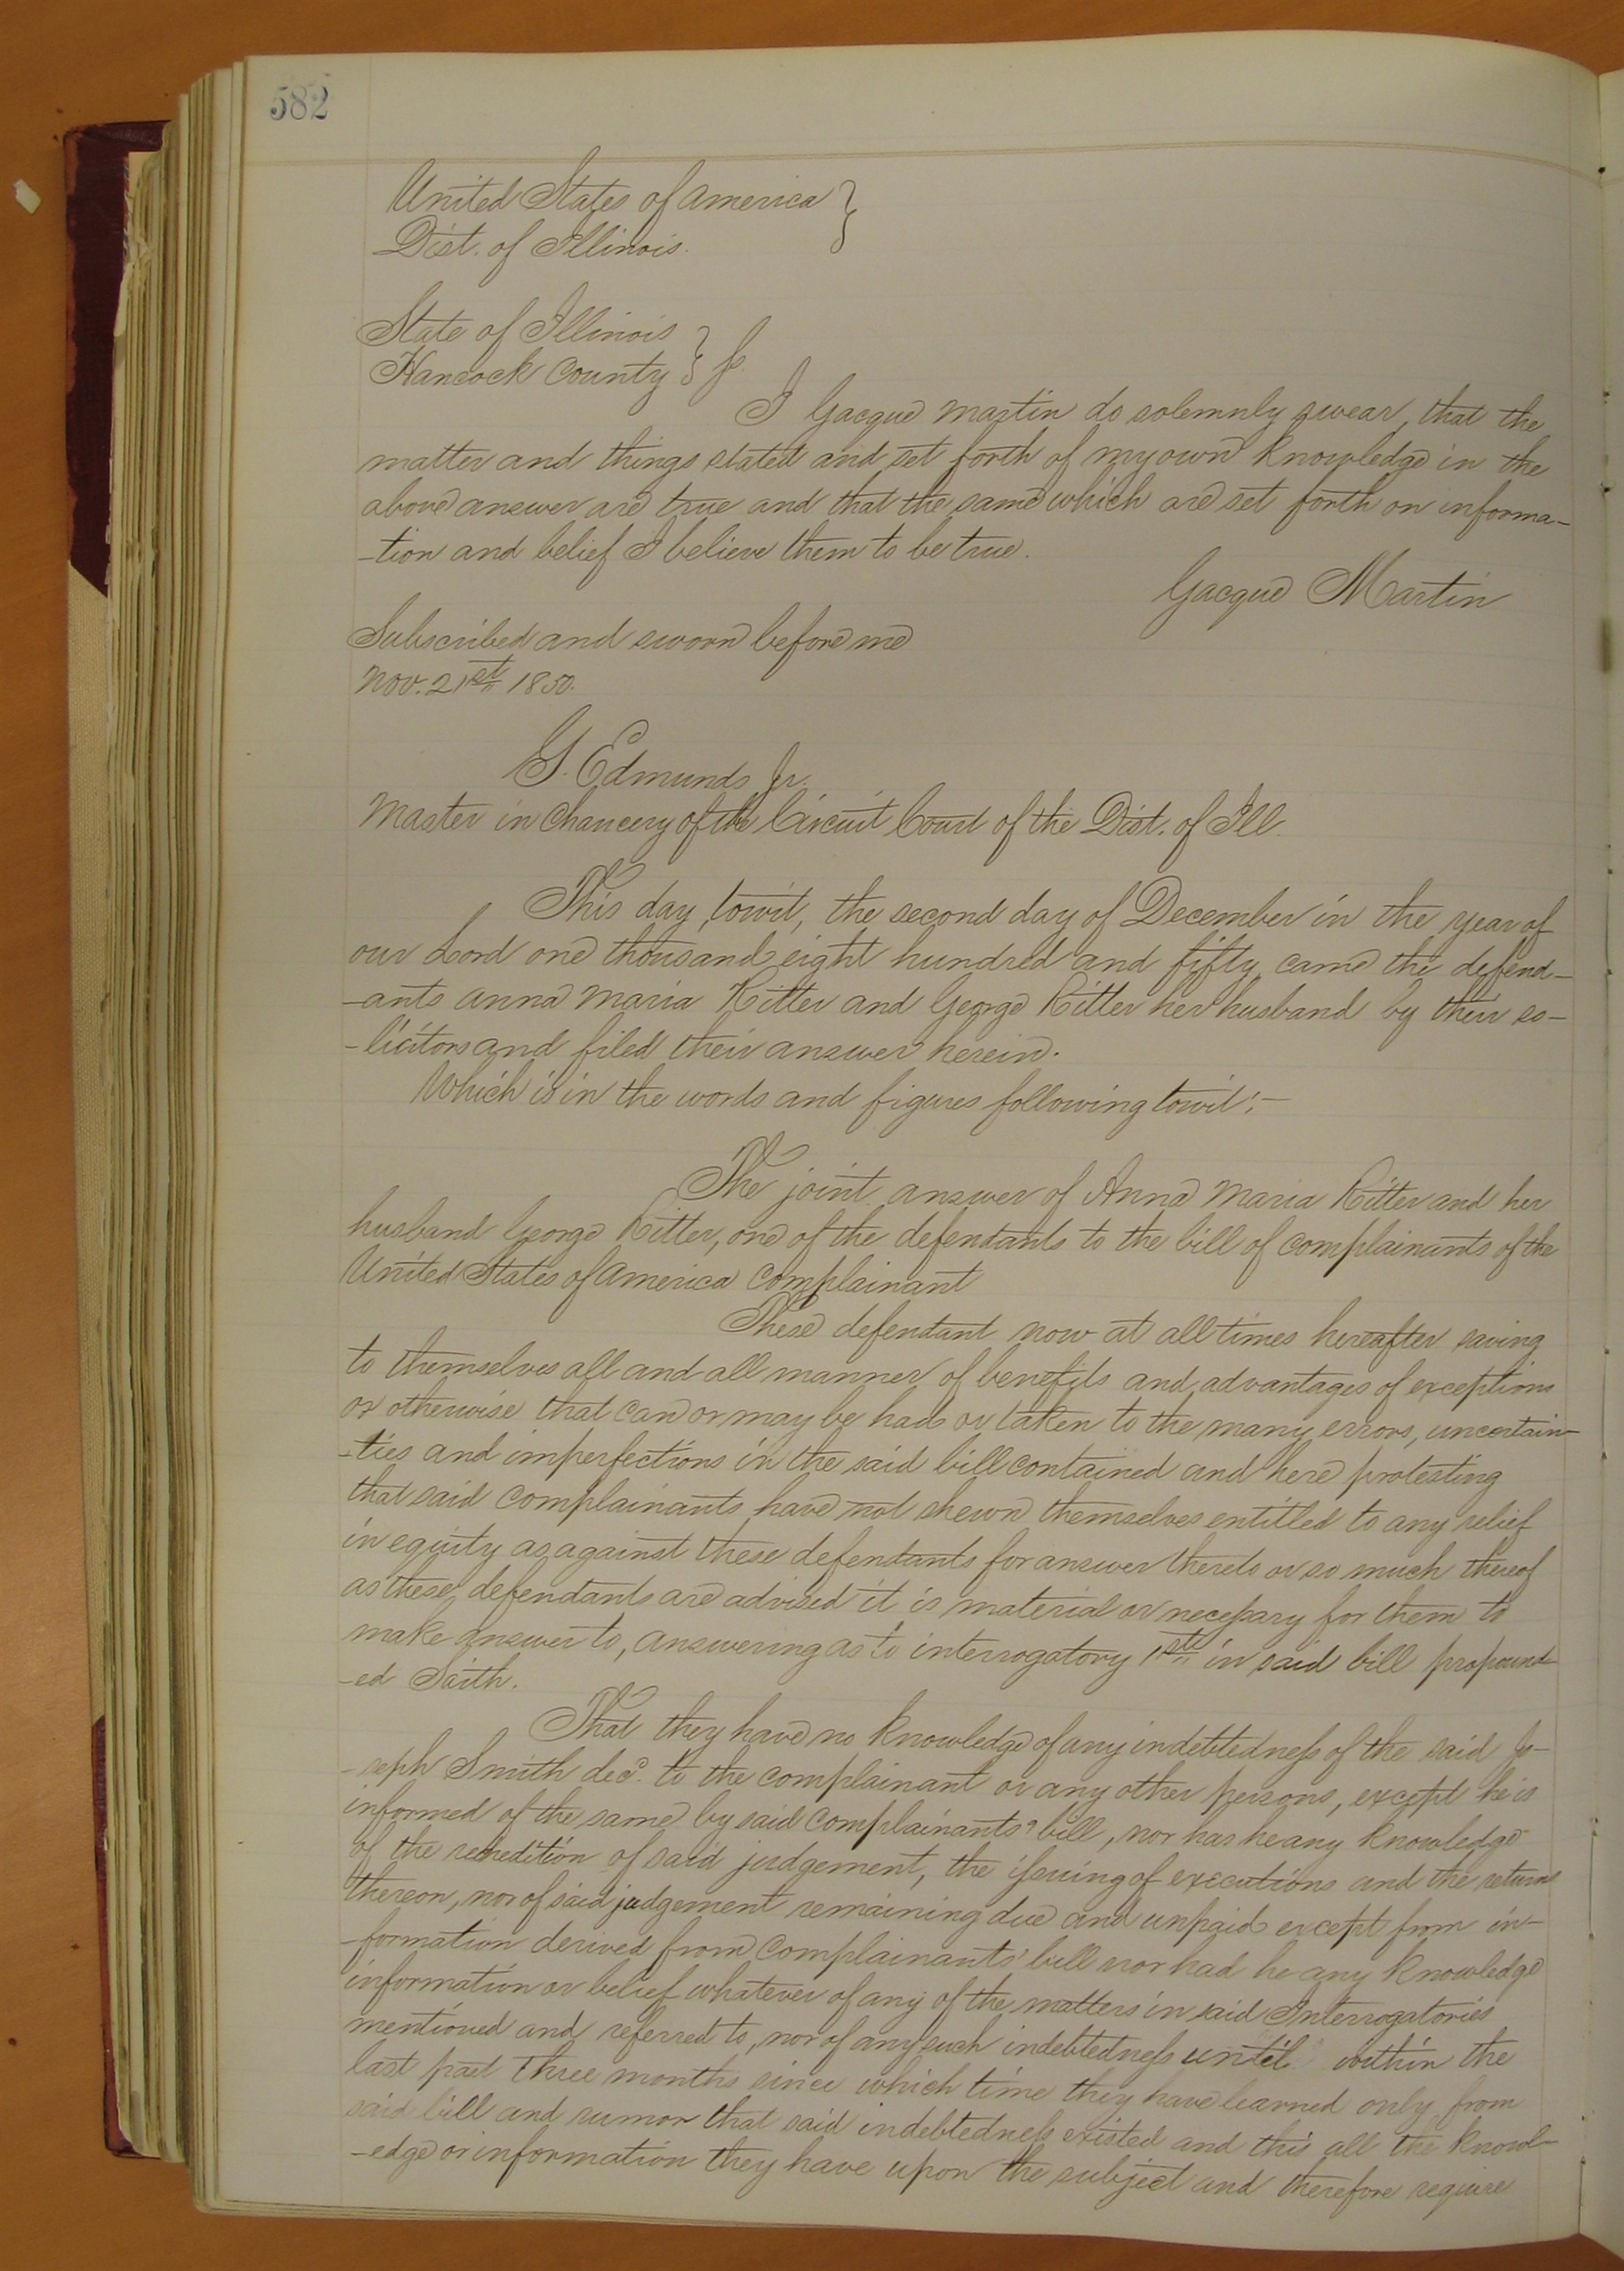 582
United States of America }
Dist. of Illinois.
State of Illinois }
Hancock County } ss.
I Gacque Martin do solemnly swear, that the
matter and things stated and set forth of my own knowledge in the
above answer are true and that the same which are set forth on informa-
-tion and belief I believe them to be true.
Gacque Martin
Subscribed and sworn before me
Nov. 21st 1850.
G. Edmunds Jr.
Master in Chancery of the Circuit Court of the Dist. of Ill.
This day, towit, the second day of December in the year of
our Lord one thousand eight hundred and fifty came the defend-
-ants Anna Maria Ritter and George Ritter her husband by their so-
-licitors and filed their answer herein.
Which is in the words and figures following towit:-
The joint answer of Anna Maria Ritter and her
husband George Ritter, one of the defendants to the bill of complainants of the
United States of America Complainant
These defendant now at all times hereafter saving
to themselves all and all manner of benefits and advantages of exceptions
or otherwise that can or may be had or taken to the many errors, uncertain-
-ties and imperfections in the said bill contained and here protesting
that said complainants have not shewn themselves entitled to any relief
in equity as against these defendants for answer thereto or so much thereof
as these defendants are advised it is material or necessary for them to
make answer to, answering as to interrogatory 1st in said bill propound-
-ed Saith.
That they have no knowledge of any indebtedness of the said Jo-
-seph Smith decd. to the complainant or any other persons, except he is
informed of the same by said complainants' bill, nor has he any knowledge
of the rendition of said judgement, the issuing of executions and the returns
thereon, nor of said judgement remaining due and unpaid except from in-
-formation derived from Complainants' bill nor had he any knowledge
information or belief whatever of any of the matters in said Interrogatories
mentioned and referred to, nor of any such indebtedness until within the
last past three months since which time they have learned only from
said bill and rumor that said indebtedness existed and this all the knowl-
-edge or information they have upon the subject and therefore require